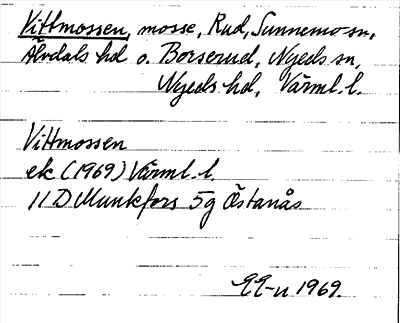 Vittmossen, mosse, Rud, Sunnemo sn,
Älvdals hd o. Borserud, Nyeds sn,
Nyeds hd, Värml. l.
Vittmossen
ek (1969) Värml. l.
11 D Munkfors 5g Östanås
1969.